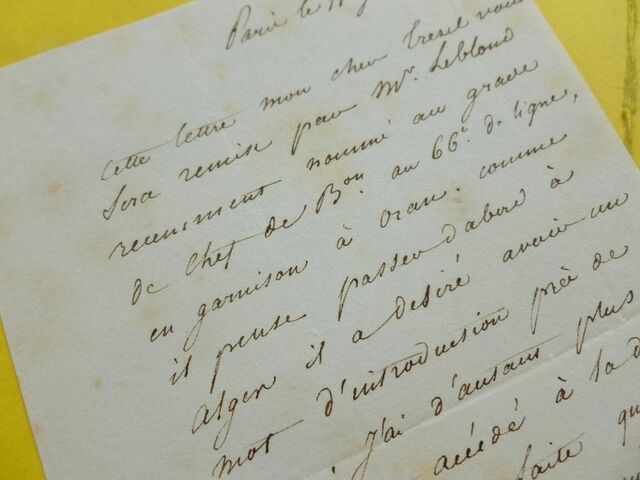 Paris le
Cette lettre mon cher Trezel vous
sera remise par Mr. Leblond
recemment nommé au grade
de Chef de Bon. au 66e. de ligne,
en garnison à Oran. comme
il pense passer d'abord à
Alger il a desiré avoir un
mot d'introduction près de
J'ai d'autant plus
accédé à la
faite